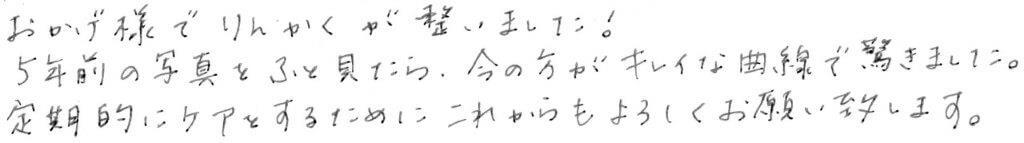 おかげ様でりんかくが整いました！
5年前の写真をふと見たら、今の方がキレイな曲線で驚きました。
定期的にケアをするためにこれからもよろしくお願い致します。